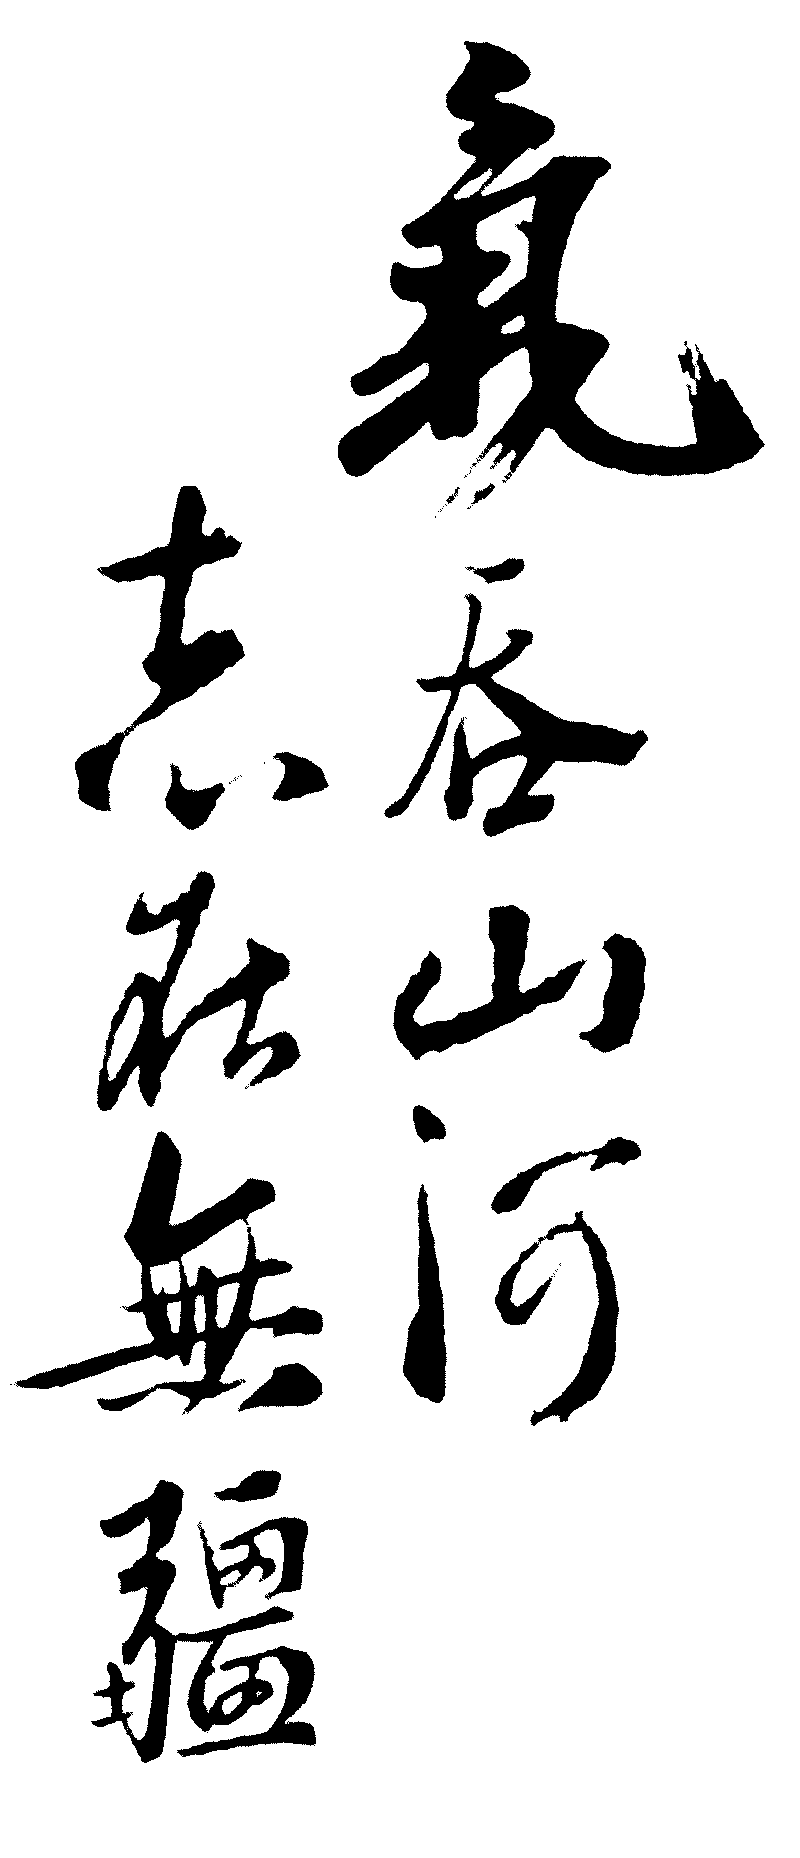 氣吞山河
志在無疆